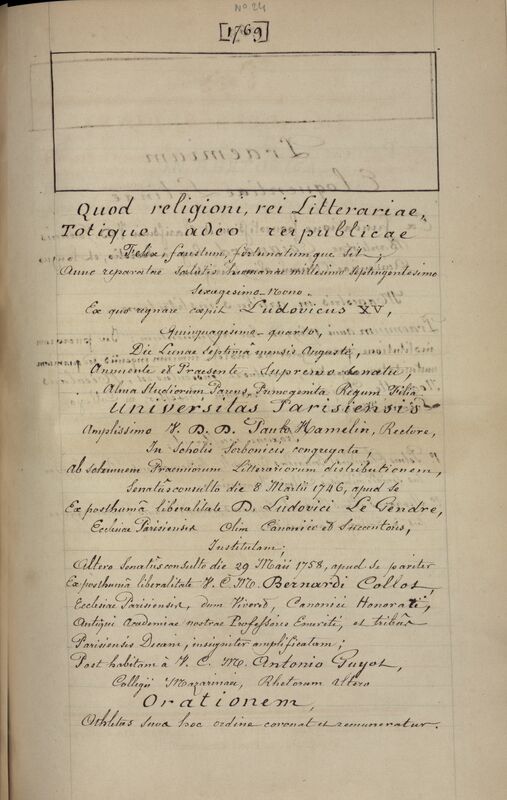 No 24
[1769]
Quod religioni, rei Litterariae,
Totique adeo reipublicae
Felix, faustum, fortunatumque sit;
Anno reparatae Salutis humanae millesimo Septingentesimo
Sexagesimo-Nono.
Ex quo regnare caepit Ludovicus XV,
quinquagesimo-quarto,
Die Lunae Septimâ mensis Augusti,
Annuente et Praesente Supremo Senatu,
Alma Studiorum Parens, Primogenita Regum Filia
Universitas Parisiensis
Amplissimo V. D. D. Paulo Hamelin, Rectore,
In Scholis Sorbonicis congregata,
Ab Solemnem Praemiorum Litterariorum distributionem,
Senatûsconsulto die 8 Martii 1746, apud se
Ex posthumâ liberalitate D. Ludovici Le Gendre,
Ecclesiae Parisiensis Olim Canonici et Succentoris,
Institutam;
Altero Senatûsconsulto die 29 Maii 1758, apud se pariter
Ex posthumâ liberalitate V. C. M. Bernardi Collot,
Ecclesiae Parisiensis, dum Viveret, Canonici Honorati,
Antiqui Academiae nostrae Professoris Emeriti, et tribûs
Parisiensis Decani, insigniter amplificatam;
Post habitam à V. C. M. Antonio Guyot,
Collegii Mazarinaei, Rhetorum Altero
Orationem,
Athletas suos hoc ordine coronat et remuneratur.